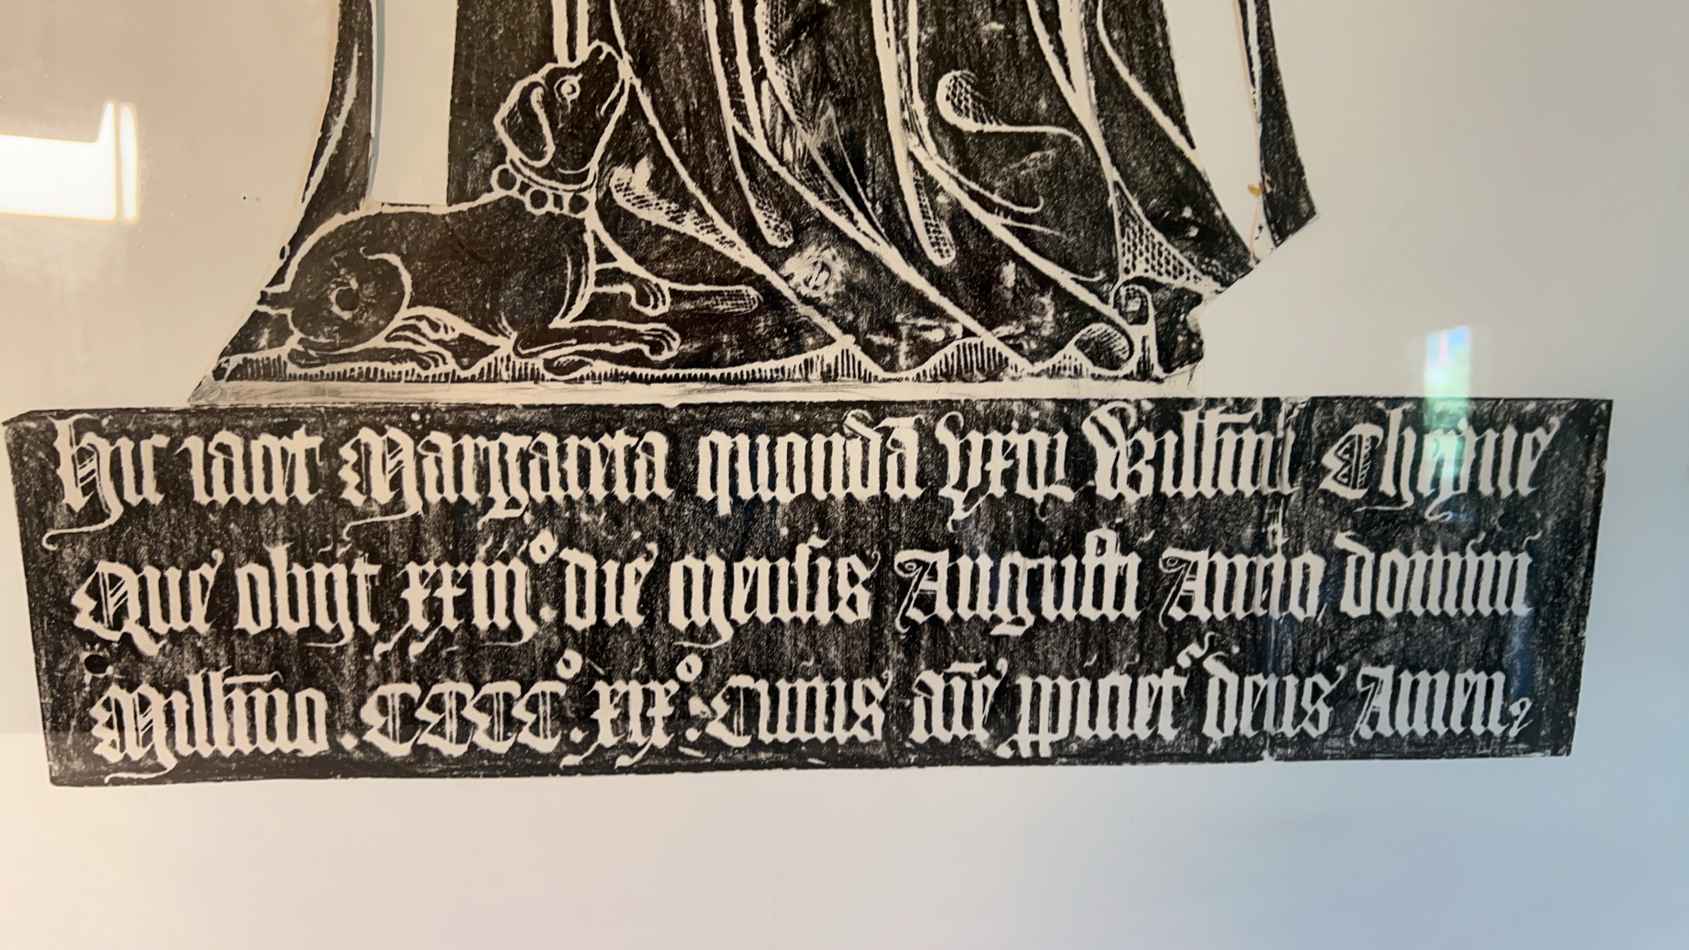 Hic iacet Margareta quondā vxor Willm̄i Cheyne
Que obijt xxiijº die Mensis Augusti Anno domini
Millm̄o CCCCº xixº Cuius aīe ppicietʳ deus Amen